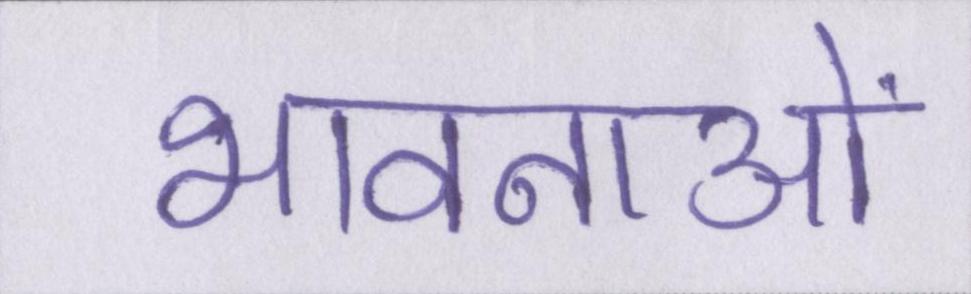 भावनाओं